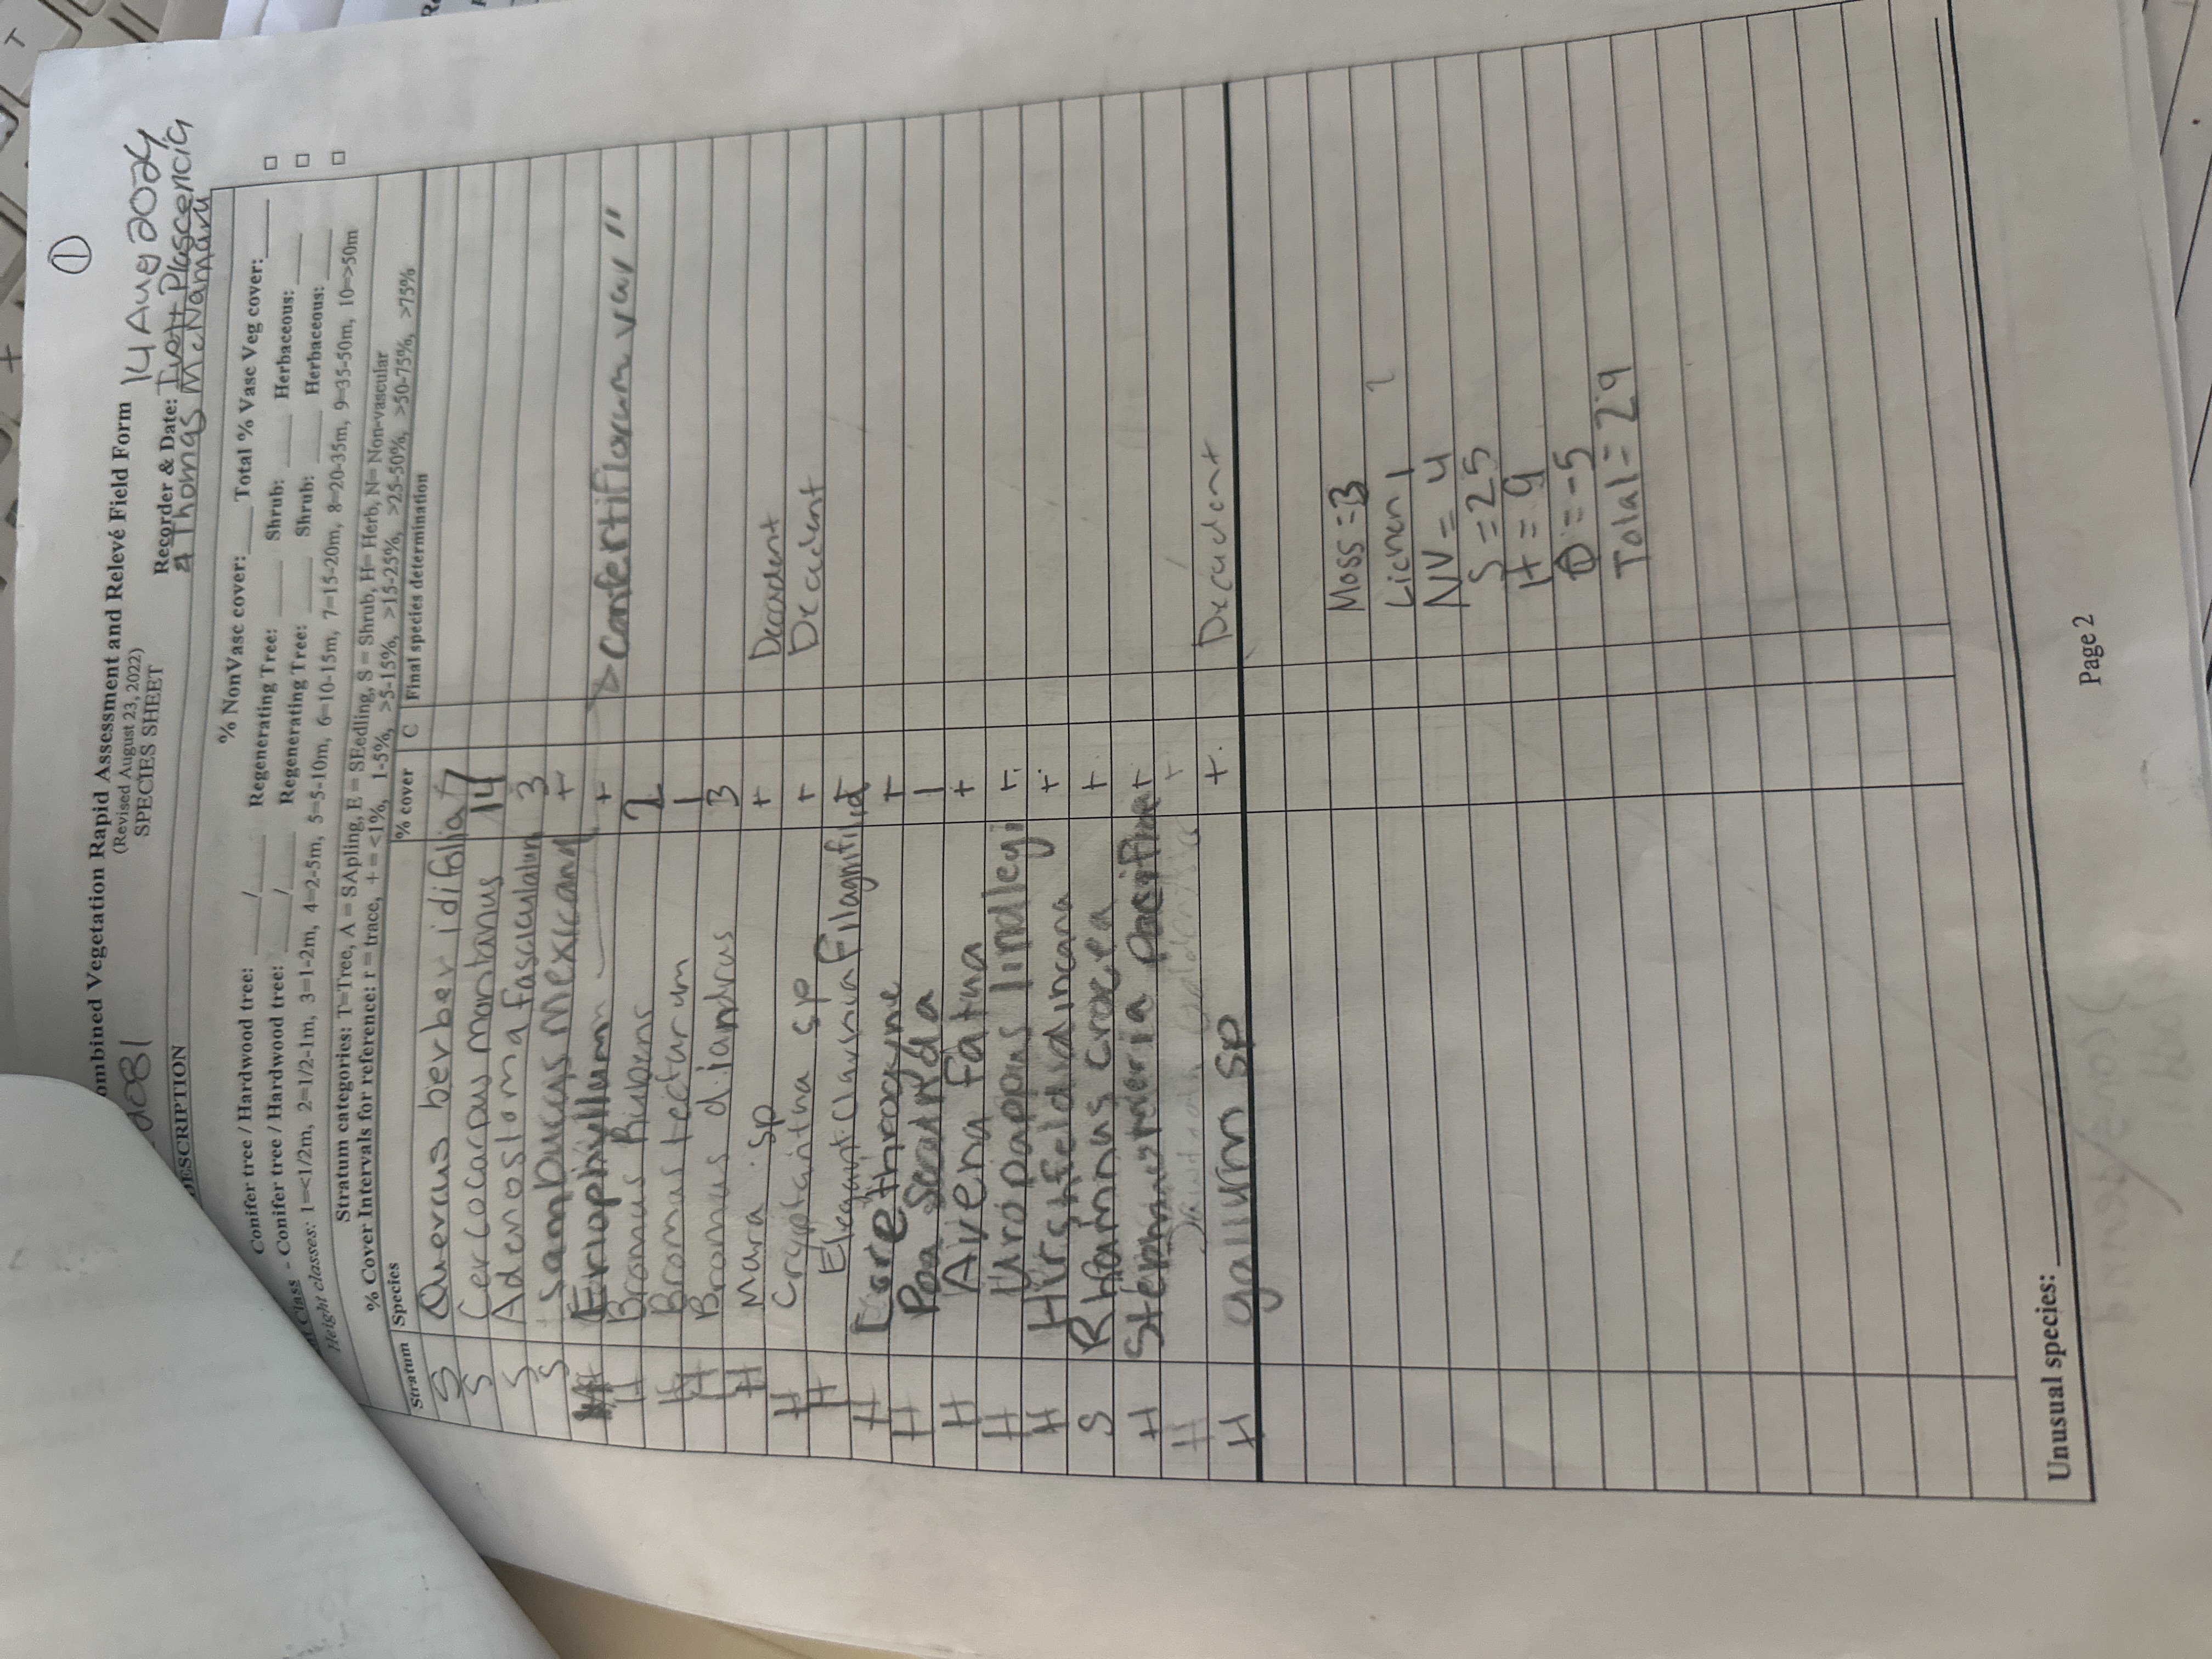 ①
ombined Vegetation Rapid Assessment and Relevé Field Form 14 Aug 2024
(Revised August 23, 2022)
SPECIES SHEET
Recorder & Date: Ivett Plascencia
& Thomas McNamara
081
DESCRIPTION
% NonVasc cover:____ Total % Vasc Veg cover:____
Conifer tree / Hardwood tree: ____/____ Regenerating Tree: ____ Shrub: ____ Herbaceous: ____ □
Class - Conifer tree / Hardwood tree: ____/____ Regenerating Tree: ____ Shrub: ____ Herbaceous: ____ □
Height classes: 1=<1/2m, 2=1/2-1m, 3=1-2m, 4=2-5m, 5=5-10m, 6=10-15m, 7=15-20m, 8=20-35m, 9=35-50m, 10=>50m □
Stratum categories: T=Tree, A = SApling, E = SEedling, S = Shrub, H= Herb, N= Non-vascular
% Cover Intervals for reference: r = trace, + = <1%, 1-5%, >5-15%, >15-25%, >25-50%, >50-75%, >75%
Stratum Species % cover C Final species determination
S Quercus berberidifolia 7
S Cercocarpus montanus 14
S Adenostoma fasciculatum 3
S Sambucus mexicana +
H Eriophyllum + > confertiflorum var "
H Bromus Rubens 2
H Bromus tectarum 1
H Bromus diandrus 3
H Mara sp + Decadent
H Cryptaintha sp + Decadent
H Elegaunt Clarkia Filagnifilia +
H Corethrogyne +
H Poa Secunda 1
H Avena Fatua +
H Uropappus lindleyi +
H Hirshfeldia incana +
S Rhamnus crocea +
H Stephanomeria +
H +
H gallium sp + Decadent
Moss = 3
Lichen 1
NV = 4
S = 25
H = 9
O = -5
Total = 29
Unusual species:
Page 2